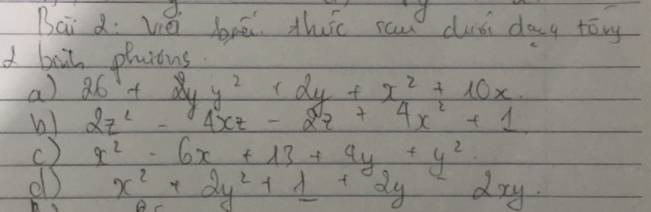 Bài 2: Viết biểu thức sau dưới dạng tổng
2 bình phương.
a) 26 + y² + 2y + x² + 10x.
b) 2z² - 4xz - 2z + 4x² + 1
c) x² - 6x + 13 + 4y + y².
d) x² + 2y² + 1 + 2y - 2xy.